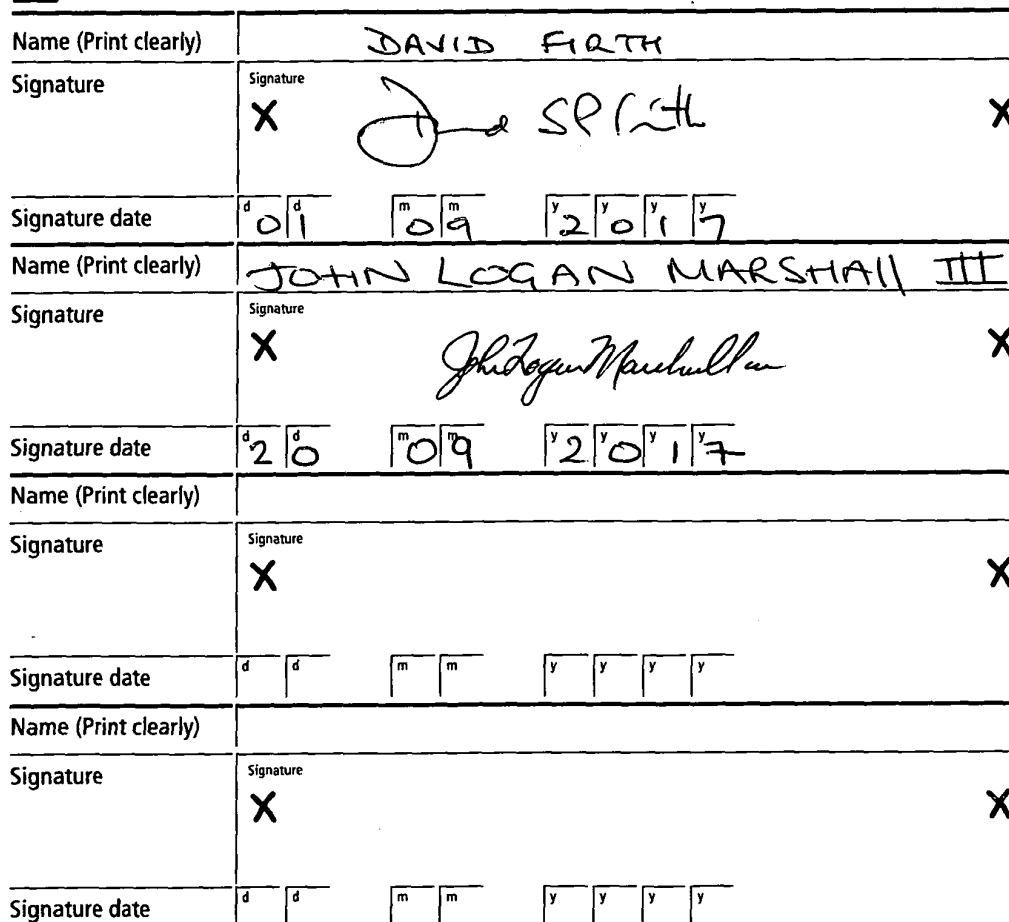 Name (Print clearly) DAVID FIRTH
Signature Signature
X X
Signature date d 0 d 1 m 0 m 9 y 2 y 0 y 1 y 7
Name (Print clearly) JOHN LOGAN MARSHAll III
Signature Signature
X John Logan Marshall X
Signature date d 2 d 0 m 0 m 9 y 2 y 0 y 1 y 7
Name (Print clearly)
Signature Signature
X X
Signature date d d m m y y y y
Name (Print clearly)
Signature Signature
X X
Signature date d d m m y y y y